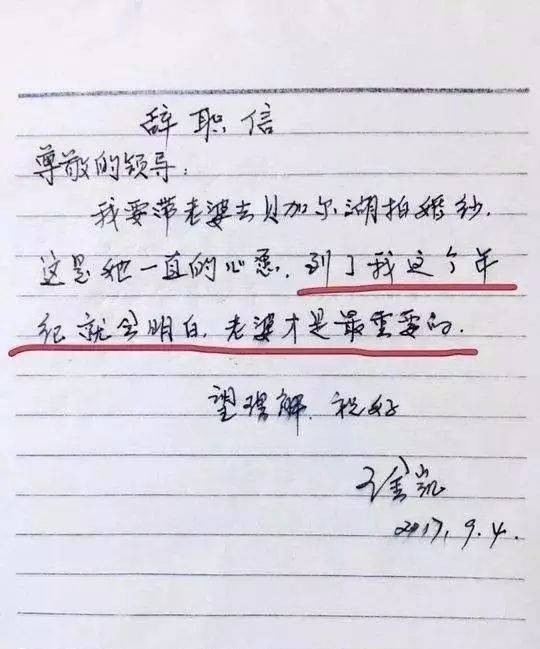 辞职信
尊敬的领导：
我要带老婆去贝加尔湖拍婚纱.
这是她一直的心愿.到了我这个年
纪就会明白.老婆才是最重要的.
望理解.祝好
凯
2017.9.4.